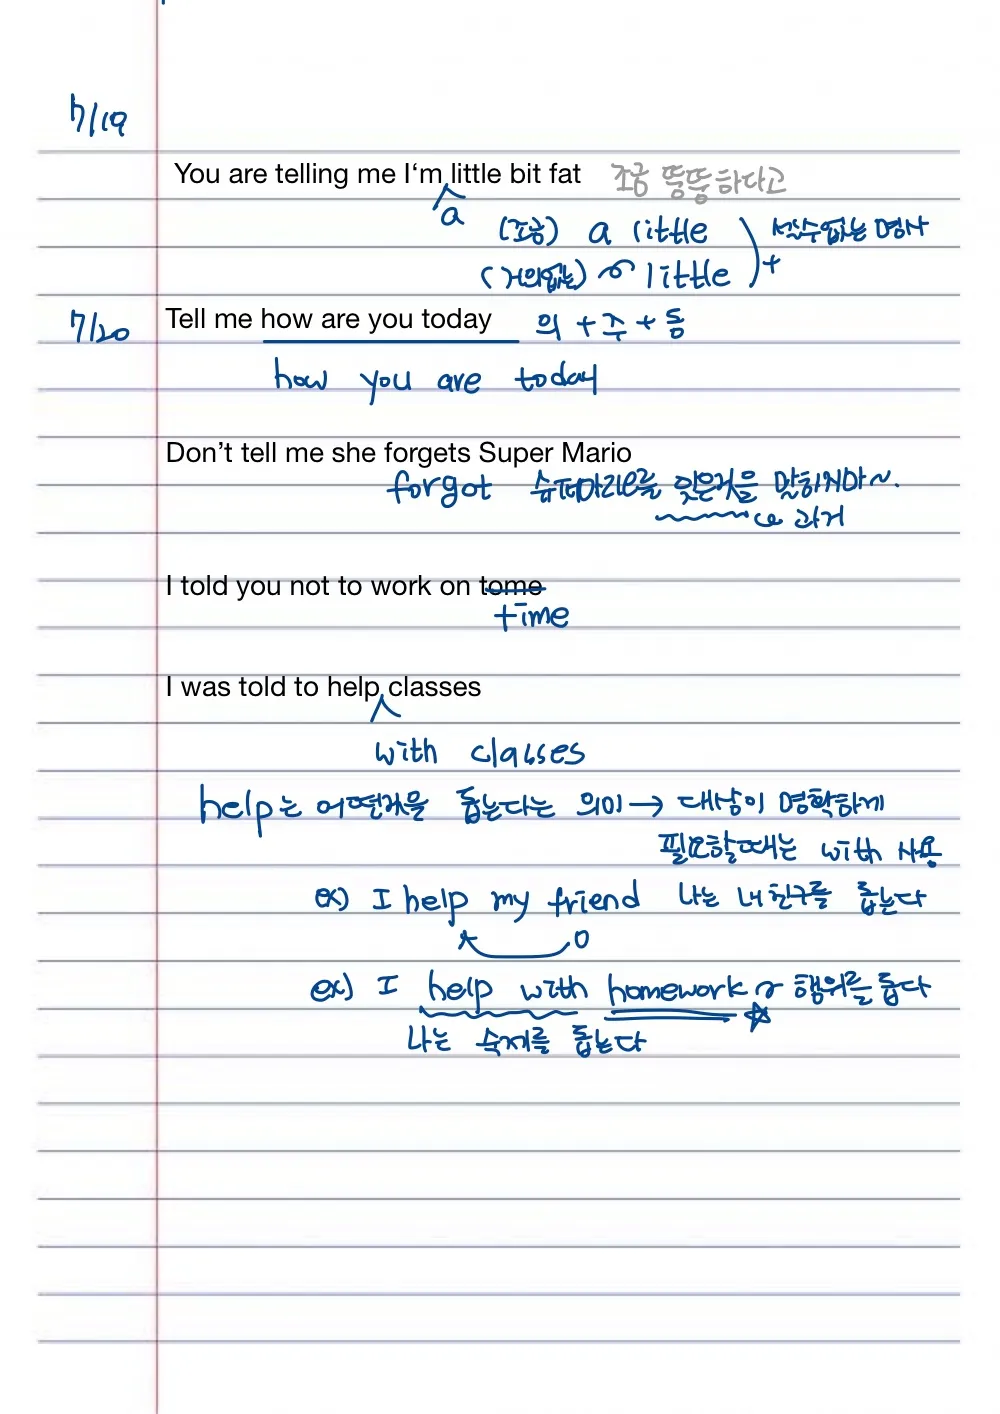 7/19
You are telling me I‘m little bit fat 조금 뚱뚱하다고
a
(조금) a little ) 셀수없는 명사
(거의없는) little +
7/20 Tell me how are you today 의 + 주 + 동
how you are today
Don’t tell me she forgets Super Mario
forgot 슈퍼마리오를 잊은것을 말하지마~.
과거
I told you not to work on tome
time
I was told to help classes
with classes
help는 어떤것을 돕는다는 의미 → 대상이 명확하게
필요할때는 with 사용
ex) I help my friend 나는 내 친구를 돕는다
ex) I help with homework 행위를 돕다
나는 숙제를 돕는다